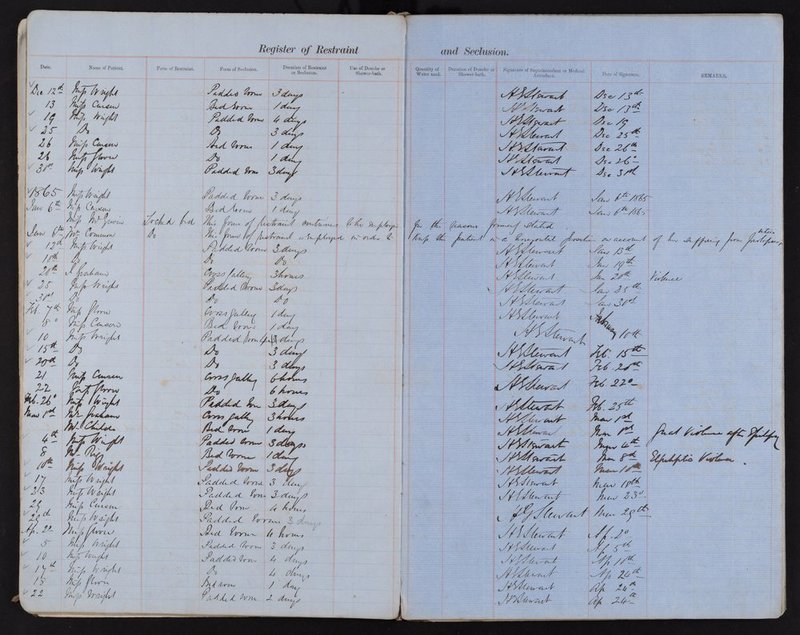 Register of Restraint and Seclusion.
Date. Name of Patient. Form of Restraint. Form of Seclusion. Duration of Restraint or Seclusion. Use of Douche or Shower-bath. Quantity of Water used. Duration of Douche or Shower-bath. Signature of Superintendent or Medical Attendant. Date of Signature. REMARKS.
Dec 12th Miss Wright Padded Room 3 days Dec 13th
13 Miss Bed room 1 day Dec 13th
19 Miss Wright Padded Room 4 days H E Stewart Dec 19
25 Do Do 3 days H E Stewart Dec 25th
26 Miss Bed room 1 day H E Stewart Dec 26th
26 Miss Do 1 day H E Stewart Dec 26
30th Miss Wright Padded room 3 days H E Stewart Dec 30th
1865 Miss Wright Padded Room 3 days H E Stewart Jan 6th 1865
Jany 6th Miss Bed Room 1 day H E Stewart Jan 6th 1865
Miss Locked bed This form of restraint continues to be employed for the reasons formerly stated
Jany 6th Mr Do This form of restraint is employed in order to keep the patient in a horizontal position on account of his suffering from
12th Miss Wright Padded Room 3 days H E Stewart Jan 13th
18th Do Do Do H E Stewart Jan 19th
20th Graham Cross Gallery 3 hours H E Stewart Jan 20th Violence
25 Miss Wright Padded Room 3 days H E Stewart Jany 25th
30th Do Do Do H E Stewart Jan 30th
Feb. 7th Miss Cross Gallery 1 day H E Stewart February
8 Miss Bed Room 1 day
10 Miss Wright Padded Room days H E Stewart 10th
15th Do Do 3 days H E Stewart Feb 15th
20th Do Do 3 days H E Stewart Feb. 20th
21 Miss Cross Gallery 6 hours
22 Miss Do 6 hours H E Stewart Feb. 22
Feb. 26 Miss Wright Padded Room 3 days H E Stewart Feb. 25th
Mar 1st Mr Graham Cross Gallery 3 hours H E Stewart Mar 1st
Mr Childe Bed Room 1 day H E Stewart Mar 1st Great Violence after Epilepsy
4th Miss Wright Padded Room 3 days H E Stewart Mar 4th
8 Mr Bed Room 1 day H E Stewart Mar 8th Epileptic Violence.
10th Miss Wright Padded Room 3 days H E Stewart Mar 10th
17 Miss Wright Padded Room 3 days H E Stewart Mar 18th
23 Miss Wright Padded Room 3 days H E Stewart Mar 23d
29 Miss Bed Room 4 hours
29d Miss Wright Padded Room 3 days Stewart Mar 29th
Ap. 2d Miss Bed Room hours H E Stewart Ap. 2d
5 Miss Wright Padded Room 3 days H E Stewart Ap 5th
10 Miss Wright Padded Room 4 days H E Stewart Ap 10th
17th Miss Wright Do 4 days H E Stewart Ap 24th
18 Miss Bed room 1 day H E Stewart Ap 24th
22 Miss Wright Padded room 2 days H E Stewart Ap 24th